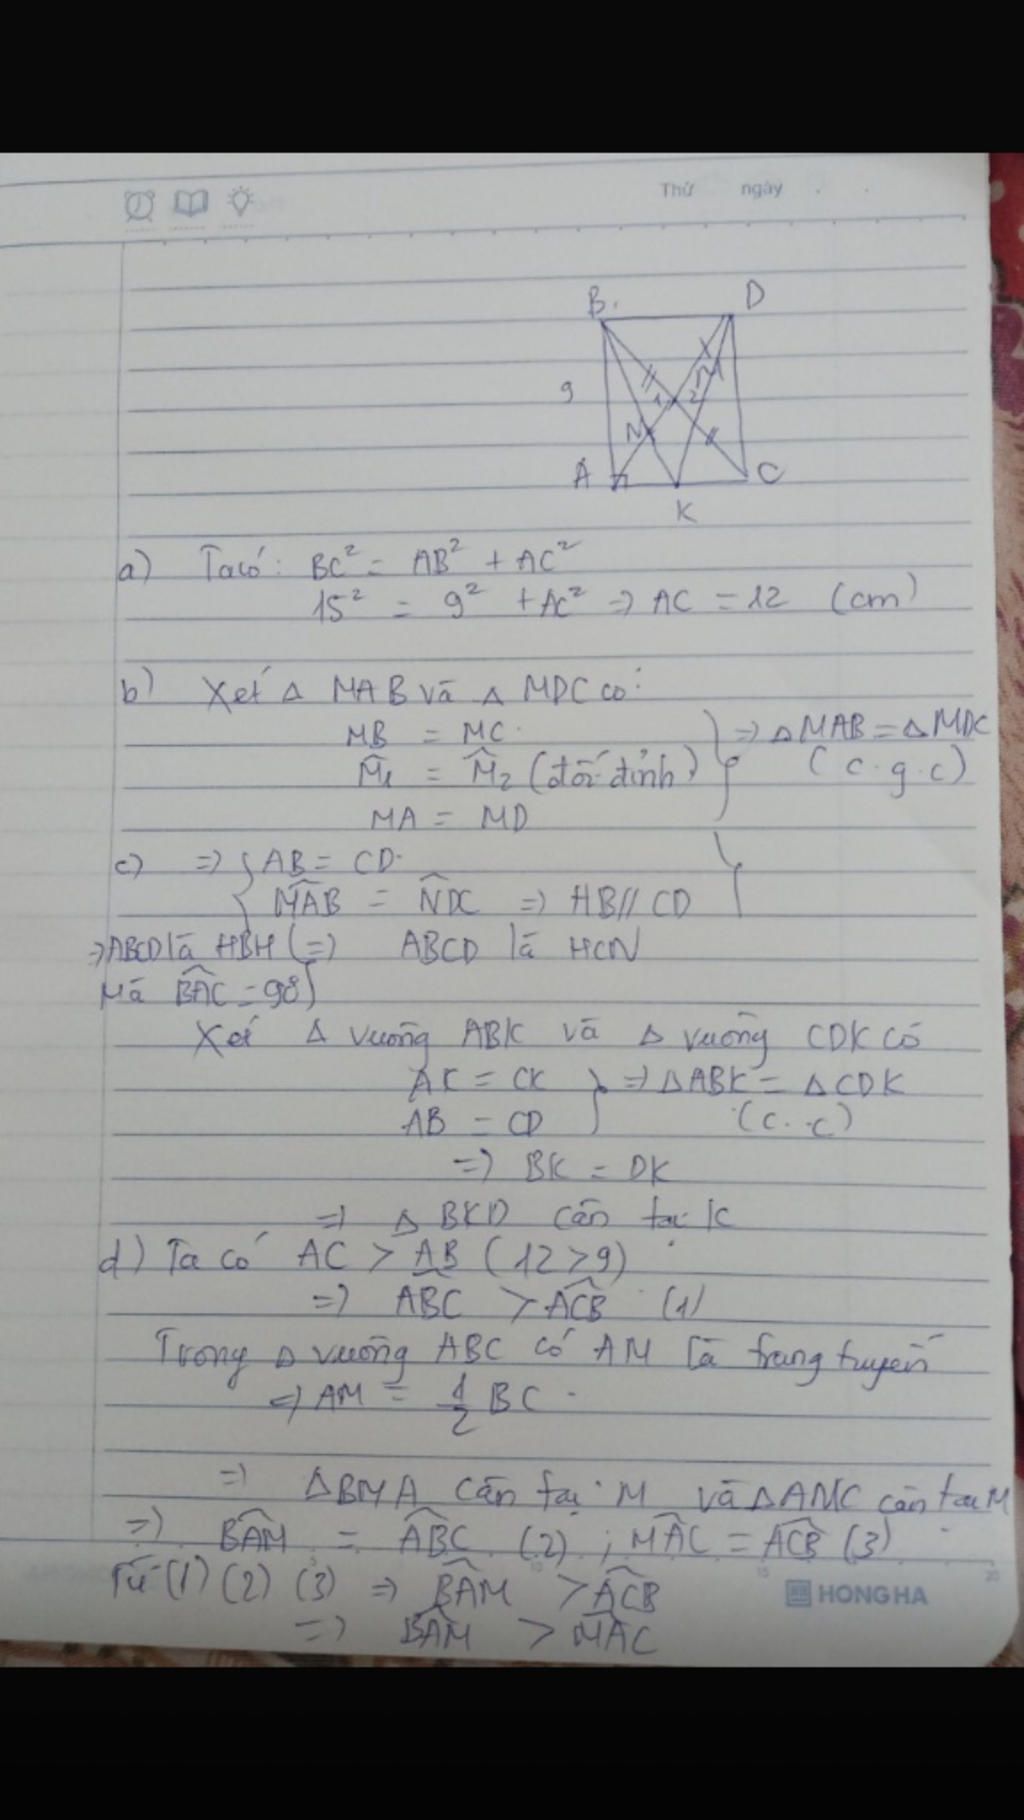 Thứ ngày
B D
9
1 2 M
N
A C
K
a) Ta có: BC² = AB² + AC²
15² = 9² + AC² => AC = 12 (cm)
b) Xét Δ MAB và Δ MDC có:
MB = MC
M̂₁ = M̂₂ (đối đỉnh) => Δ MAB = Δ MDC
MA = MD (c.g.c)
c) => AB = CD
MAB = NDC => HB // CD
=> ABCD là HBH => ABCD là HCN
Mà BAC = 90
Xét Δ vuông ABK và Δ vuông CDK có
AK = CK => Δ ABK = Δ CDK
AB = CD (c..c)
=> BK = DK
=> Δ BKD cân tại K
d) Ta có AC > AB (12 > 9)
=> ABC > ACB (1)
Trong Δ vuông ABC có AM là trung tuyến
=> AM = 1/2 BC
=> ΔBMA cân tại M và ΔAMC cân tại M
=> BAM = ABC (2) ; MAC = ACB (3)
Từ (1) (2) (3) => BAM > ACB
=> BAM > MAC
15 20
HONG HA